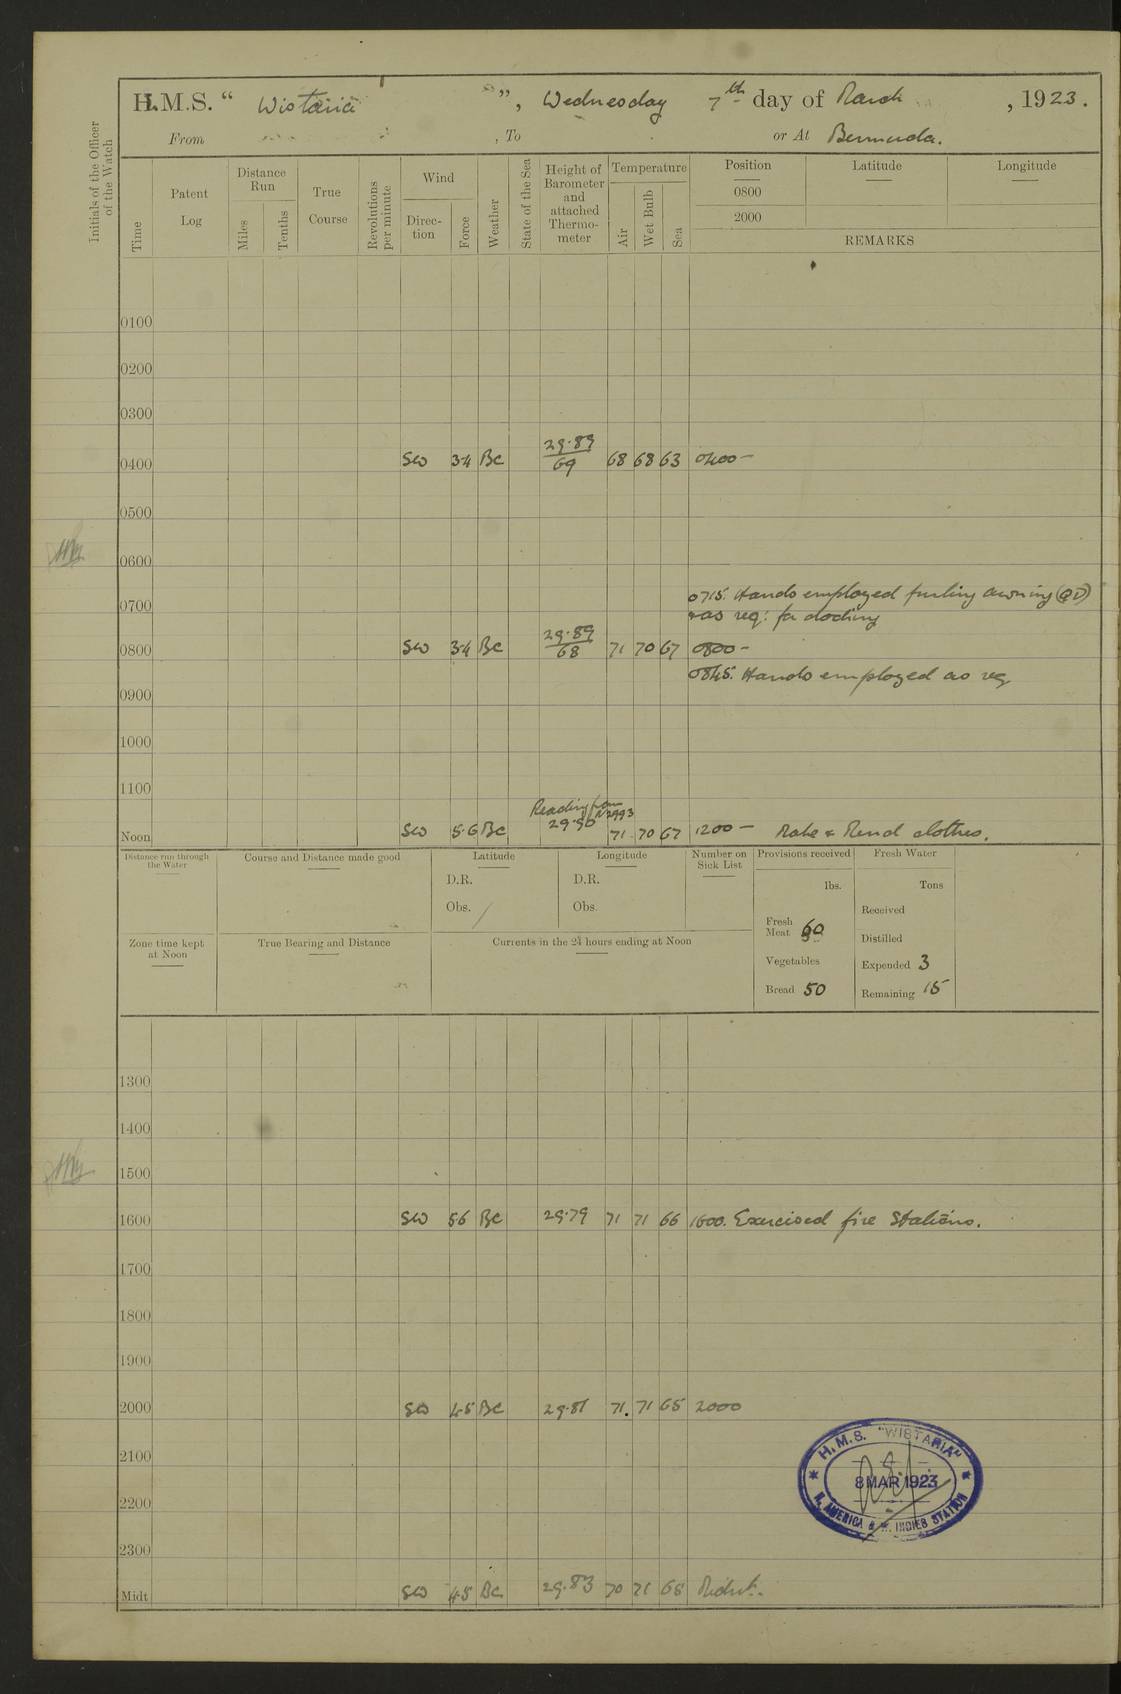 H.M.S. “ Wistaria ”, Wednesday 7th day of March, 1923.
From , To or At Bermuda.
Initials of the Officer of the Watch
Time
Patent Log
Distance Run
Miles
Tenths
True Course
Revolutions per minute
Wind
Direction
Force
Weather
State of the Sea
Height of Barometer and attached Thermometer
Temperature
Air
Wet Bulb
Sea
Position
Latitude
Longitude
0800
2000
REMARKS
0100
0200
0300
0400 SW 3.4 BC 29.89/69 68 68 63 0400 –
0500
0600
0715. Hands employed furling awning (QD)
0700 + as req: for docking
0800 SW 3.4 BC 29.89/68 71 70 67 0800 –
0845. Hands employed as req
0900
1000
1100
Reading from
Noon SW 5.6 BC 29.90 71 70 67 1200 – Make & Mend clothes.
Distance run through the Water
Course and Distance made good
Latitude
Longitude
Number on Sick List
Provisions received
Fresh Water
D.R. D.R. lbs. Tons
Obs. Obs. Received
Fresh Meat 60 Distilled
Zone time kept at Noon
True Bearing and Distance
Currents in the 24 hours ending at Noon
Vegetables Expended 3
Bread 50 Remaining 15
1300
1400
1500
1600 SW 5.6 BC 29.79 71 71 66 1600. Exercised fire Stations.
1700
1800
1900
2000 SW 4.5 BC 29.81 71. 71 65 2000
2100
H.M.S. "WISTARIA"
8 MAR 1923
N. AMERICA & W. INDIES STATION
2200
2300
Midt SW 4.5 BC 29.83 70 71 65 Midnt.